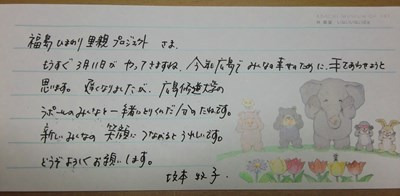 福島ひまわり里親プロジェクト さま
もうすぐ3月11日が やってきますね。今年も広島で みんなの幸せのために、手をあわせようと
思います。遅くなりましたが、広島修道大学の
みんなと一緒にとりくんだ
新しいみんなの 笑顔に つながるとうれしいです。
どうぞ よろしく お願いします。
坂本